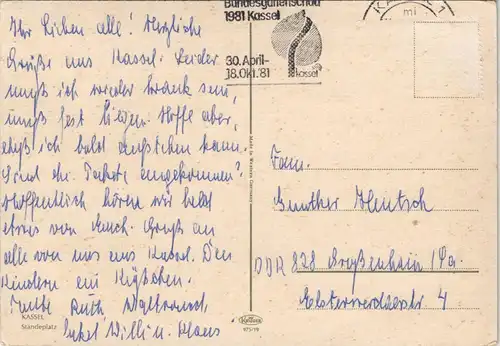 Ihr Lieben alle! Herzliche
Grüße aus Kassel. Leider
muß ich wieder krank sein,
muß fest liegen. Hoffe aber,
daß ich bald aufstehen kann.
Sind die Pakete angekommen?
Hoffentlich hören wir bald
etwas von Euch. Gruß an
alle von uns aus Kassel. Den
Kindern ein Küßchen.
Ruth, Waltraud,
Willi u. Klaus
KASSEL
Ständeplatz
Bundesgartenschau
1981 Kassel
30. April-
18. Okt. 81
kassel
KASSEL 1
mi
Fam.
Günther Hentsch
DDR 828 Großenhain/Sa.
Elsterwerdaerstr 4